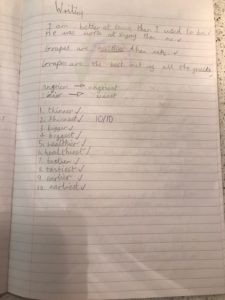 Writing
I am better at than I used to be.
He was worse at trying than me. ✓
Grapes are healthier than nuts. ✓
Grapes are the best out of all the
angrier → angriest
→ worst
1. thinner ✓
2. thinnest ✓ 10/10
3. bigger ✓
4. biggest ✓
5. healthier ✓
6. healthiest ✓
7. ✓
8. tastiest ✓
9. earlier ✓
10. earliest ✓